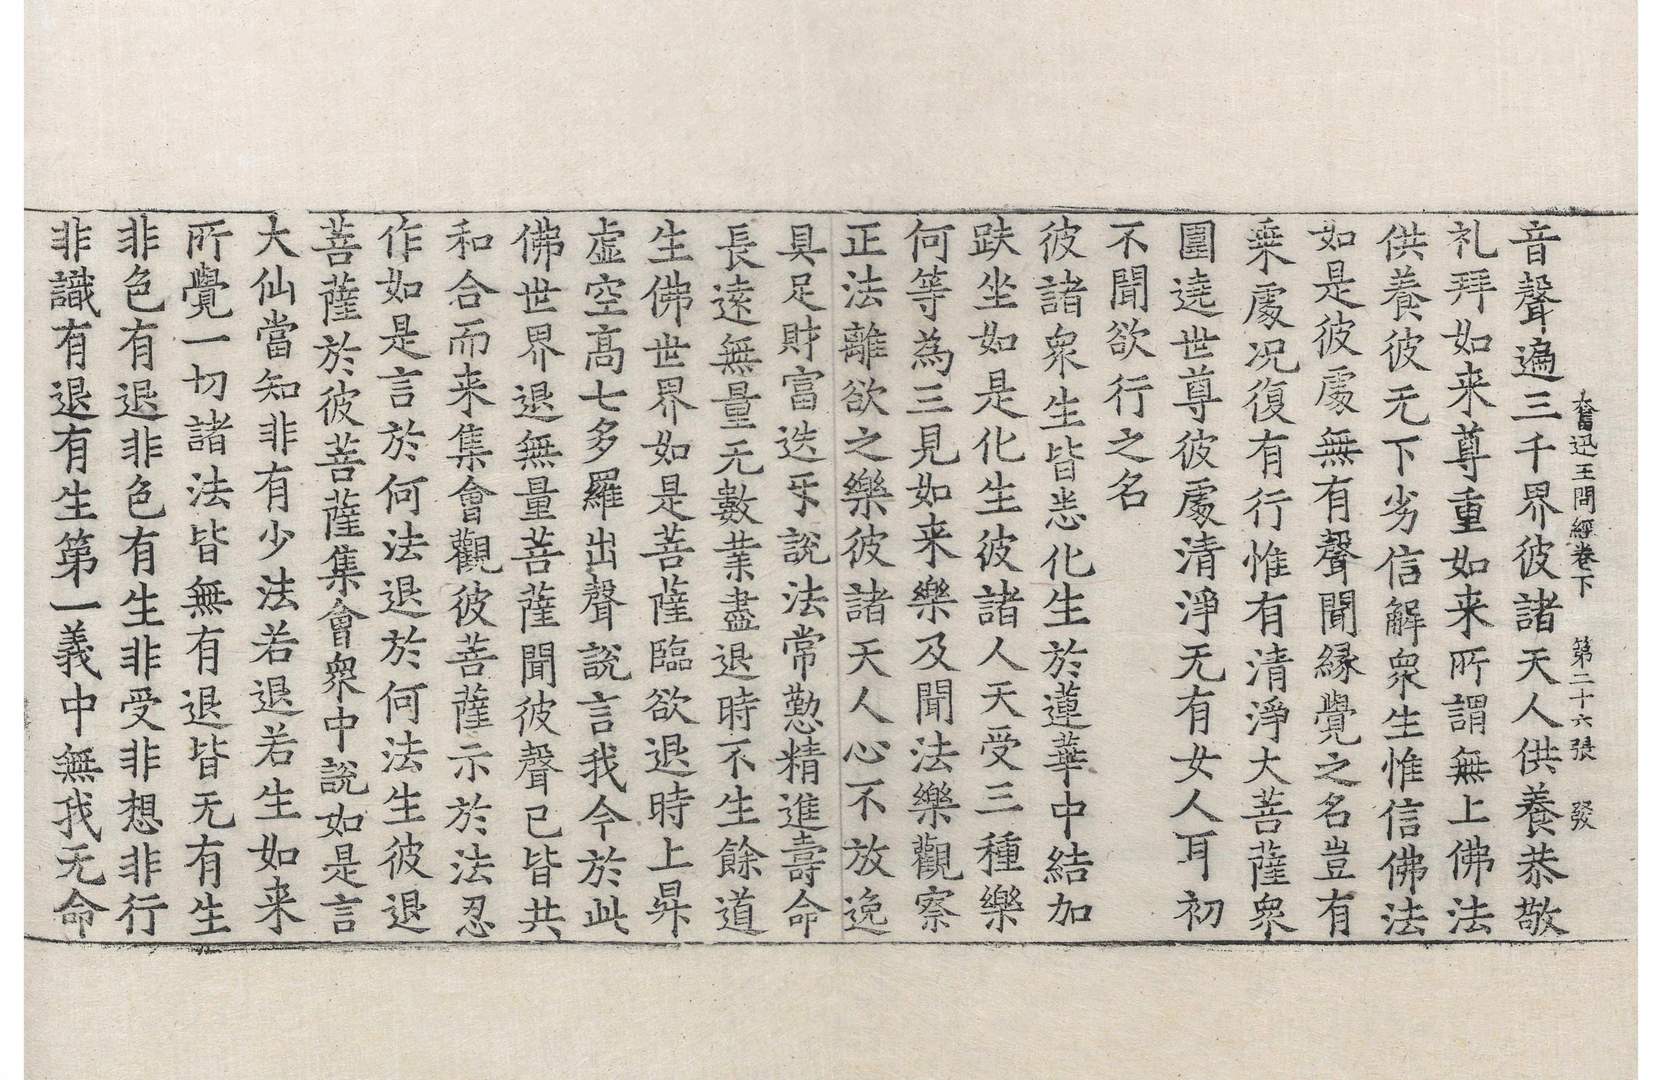 奮迅王問經卷下　第二十六張　發
音聲遍三千界彼諸天人供養恭敬
礼拜如来尊重如来所謂無上佛法
供養彼无下劣信解衆生惟信佛法
如是彼處無有聲聞縁覺之名豈有
乗處况復有行惟有清淨大菩薩衆
圍遶世尊彼處清淨无有女人耳初
不聞欲行之名
彼諸衆生皆悉化生於蓮華中結加
趺坐如是化生彼諸人天受三種樂
何等為三見如来樂及聞法樂觀察
正法離欲之樂彼諸天人心不放逸
具足財富迭㸦說法常懃精進壽命
長遠無量无數業盡退時不生餘道
生佛世界如是菩薩臨欲退時上昇
虚空高七多羅出聲說言我今於此
佛世界退無量菩薩聞彼聲已皆共
和合而来集會觀彼菩薩示於法忍
作如是言於何法退於何法生彼退
菩薩於彼菩薩集會衆中說如是言
大仙當知非有少法若退若生如来
所覺一切諸法皆無有退皆无有生
非色有退非色有生非受非想非行
非識有退有生第一義中無我无命